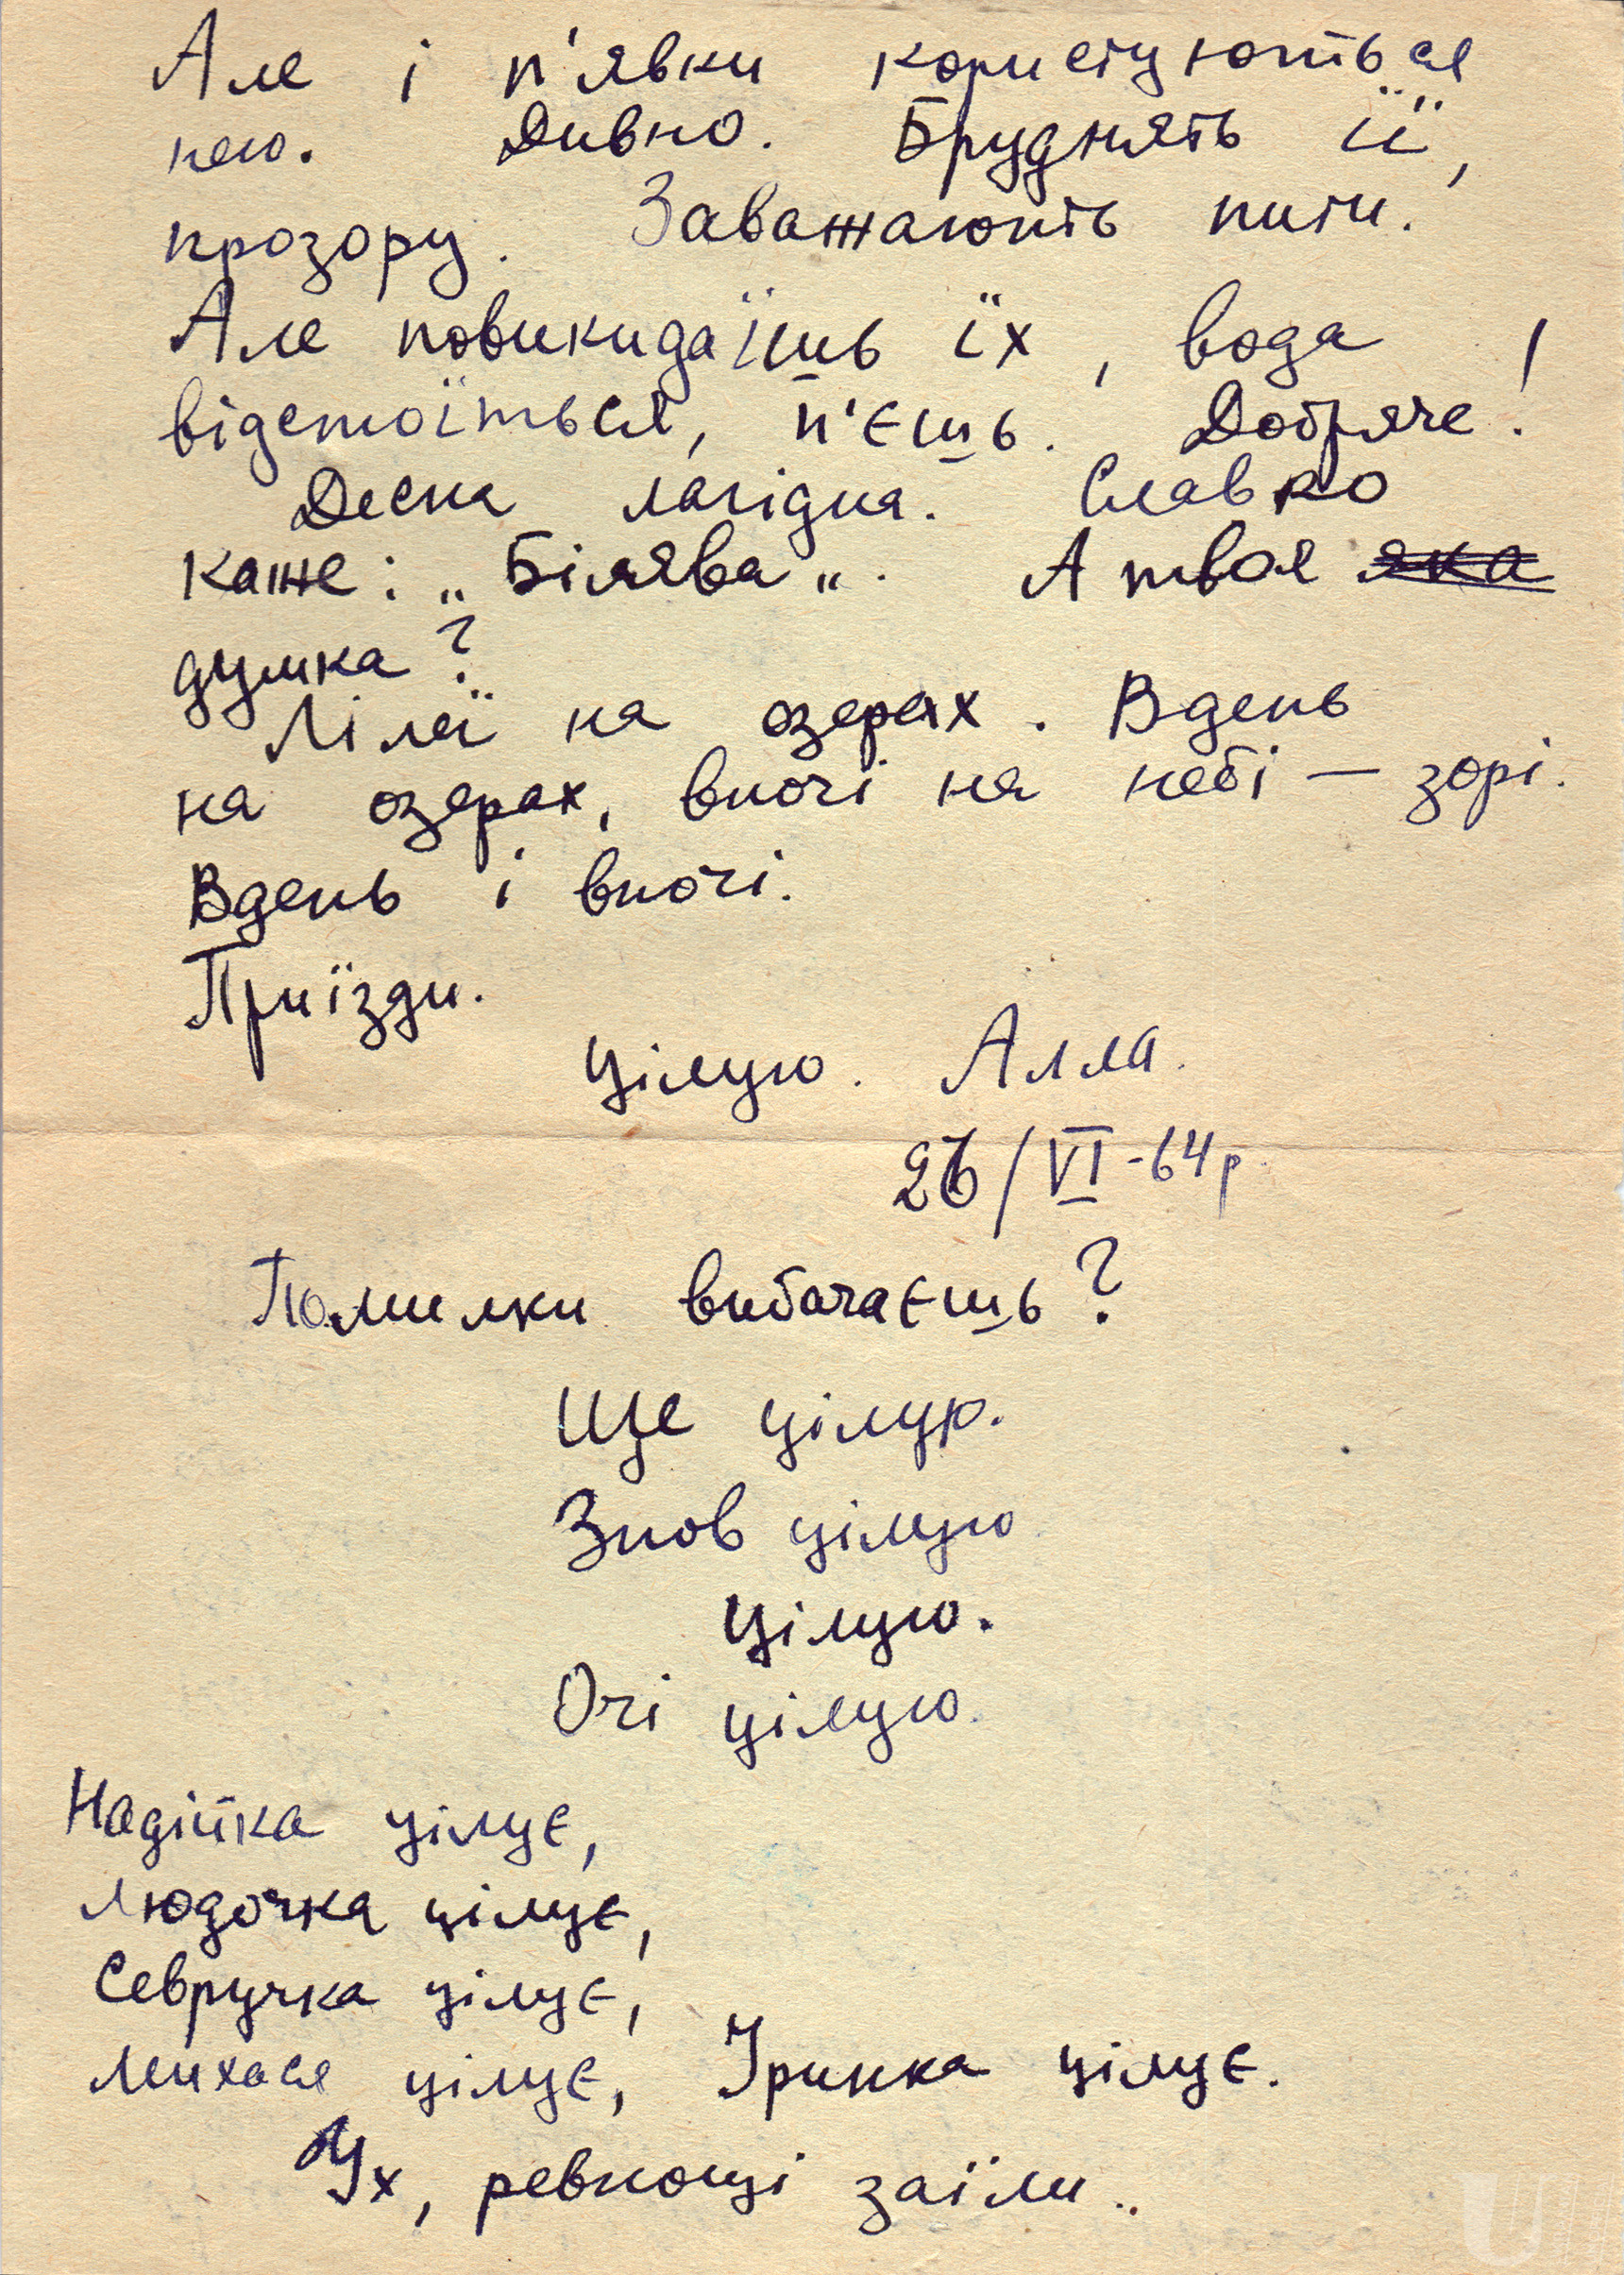 Але і п'явки користуються
нею. Дивно. Бруднять її,
прозору. Заважають пити.
Але повикидаїшь їх, вода
відстоїться, п'єшь. Добряче!
Десна лагідна. Славко
каже: „Білява„. А твоя яка
думка?
Лілеї на озерах. Вдень
на озерах, вночі на небі — зорі.
Вдень і вночі.
Приїзди.
Цілую. Алла.
26/VI-64р.
Помилки вибачаєшь?
Ще цілую.
Знов цілую
Цілую.
Очі цілую.
Надійка цілує,
Людочка цілує,
Севручка цілує,
Михася цілує, Іринка цілує.
Ух, ревнощі заїли..